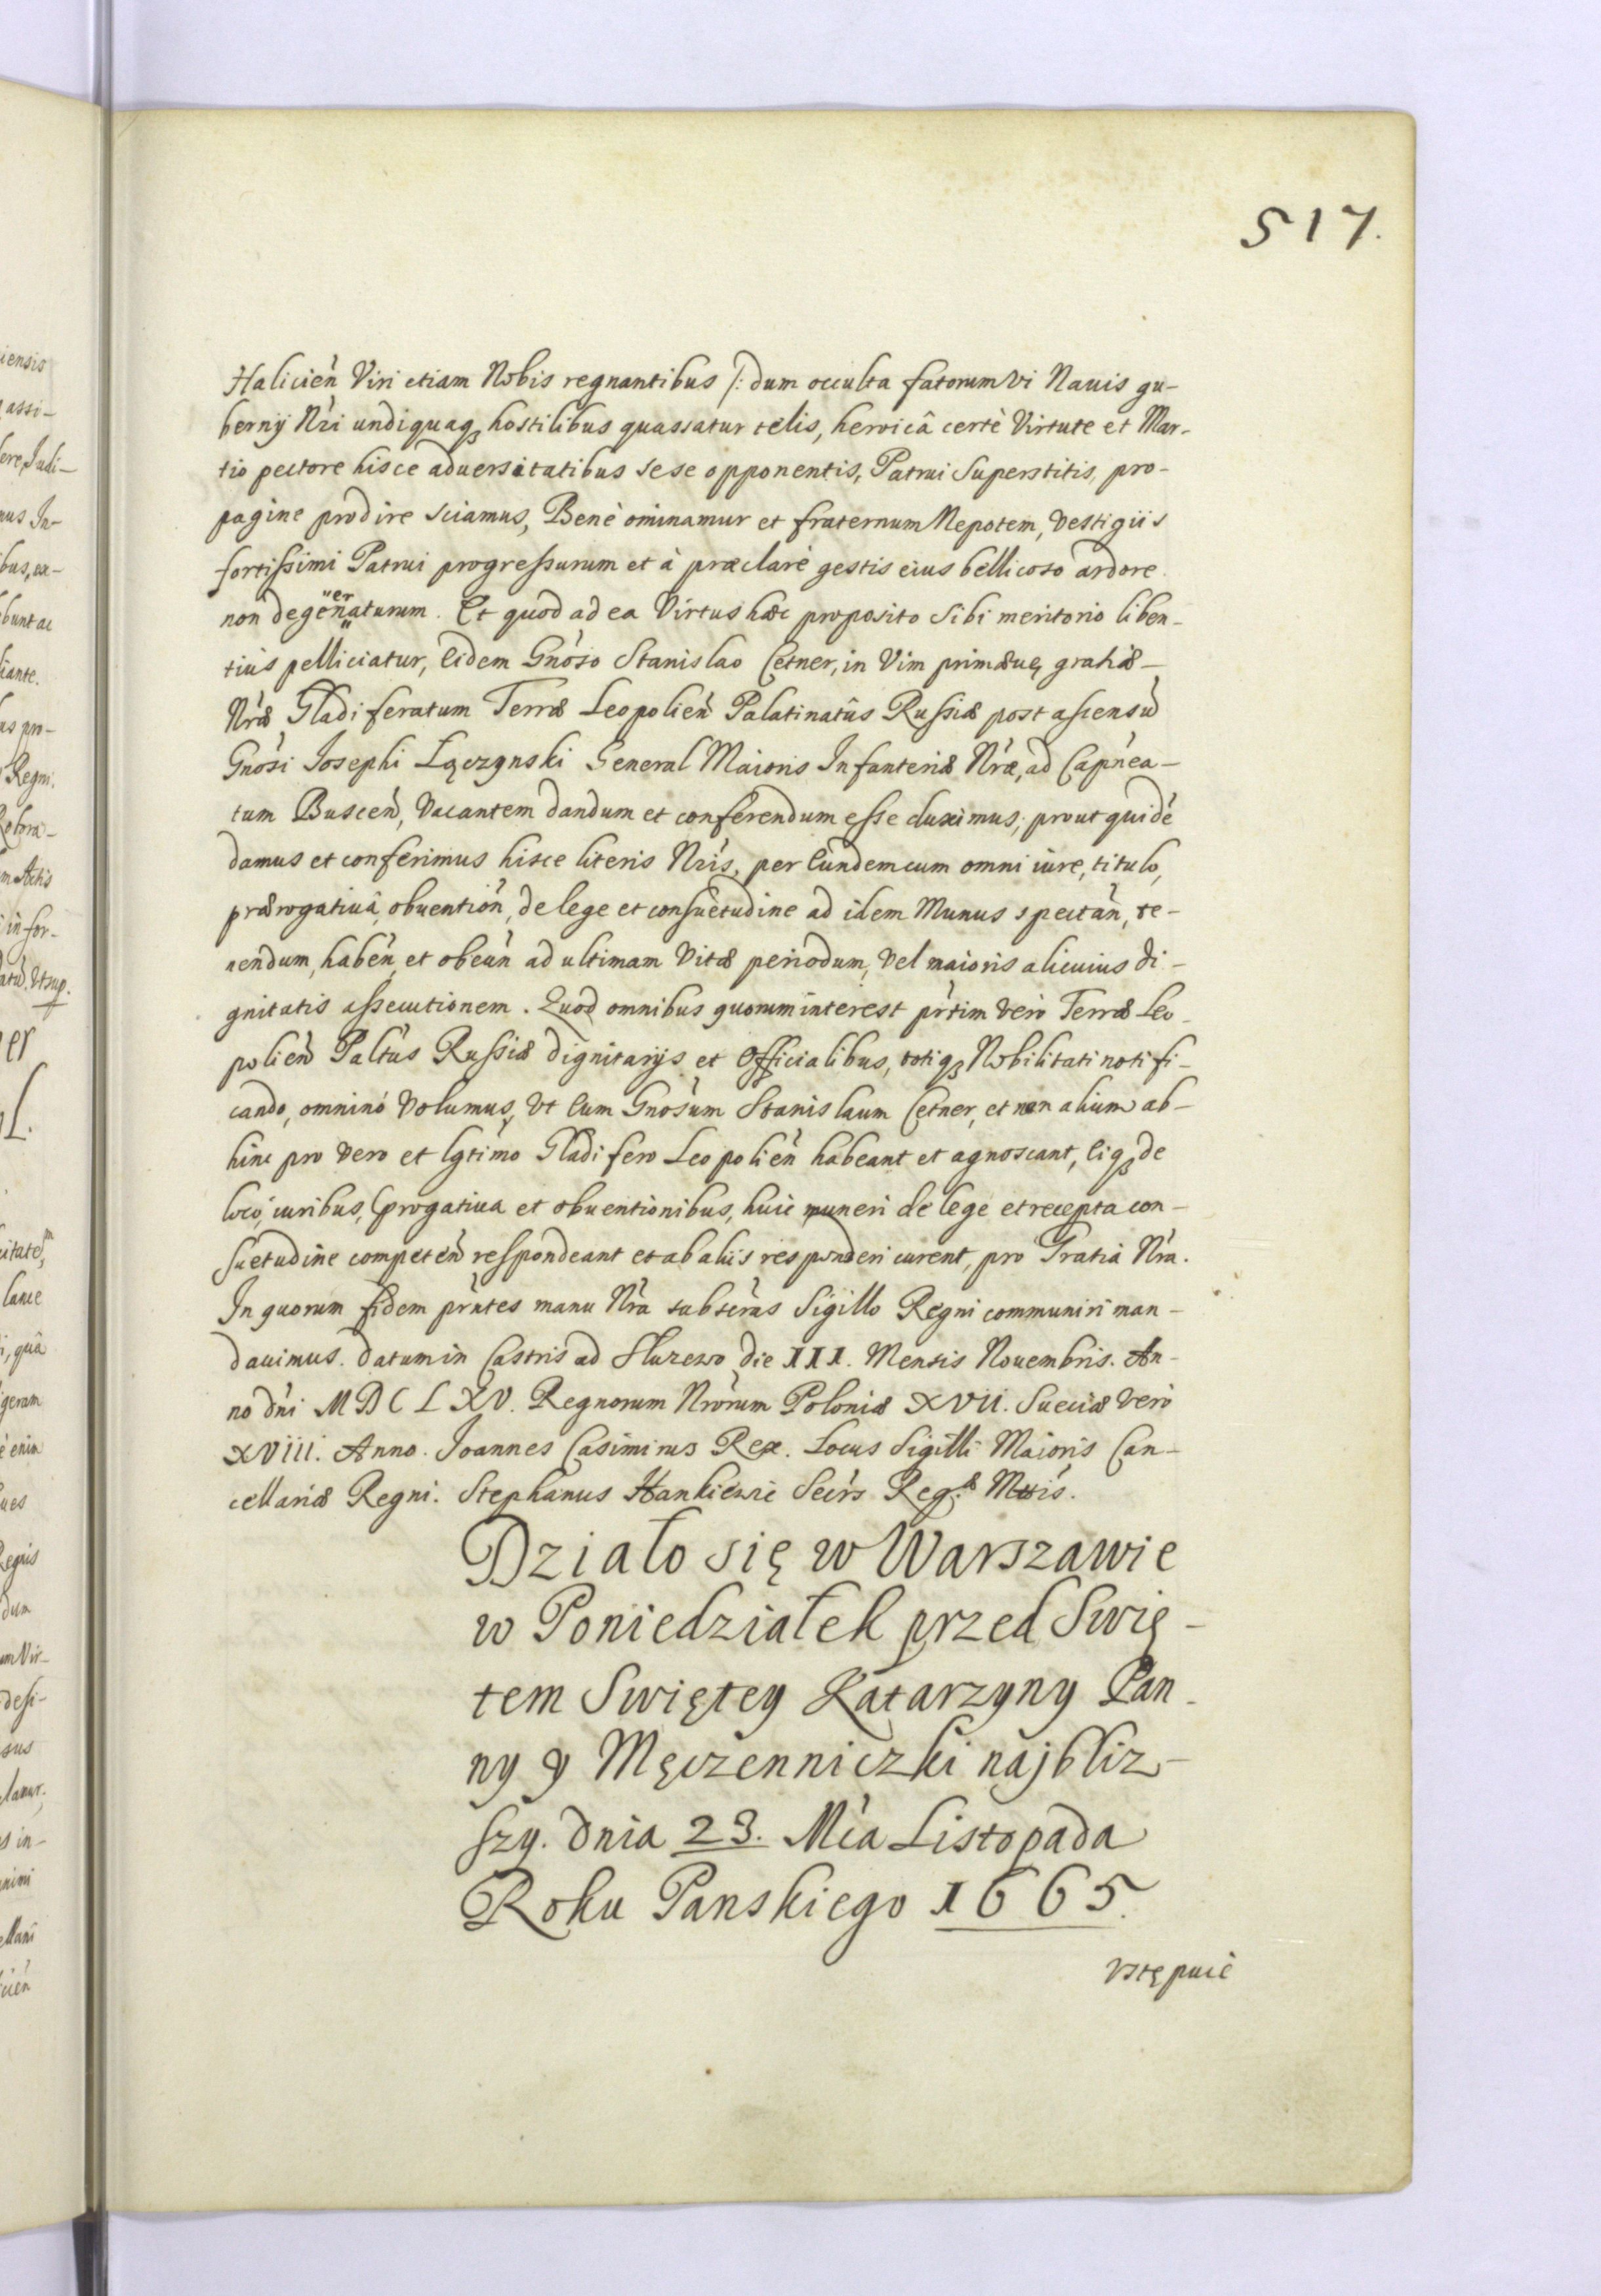 517.
Halicień Viri etiam Nobis regnantibus /: dum occulta fatorum vi Nauis gu-
bernij Nri undiquaq hostilibus quassatur telis, heroicâ certè Virtute et Mar-
tio pectore hisce aduersitatibus sese opponentis, Patrui Superstitis, pro-
pagine prodire sciamus, Benè ominamur et fraternum Nepotem, vestigiis
fortissimi Patrui progressurum et à præclarè gestis eius bellicoso ardore
non degeneraturum. Et quod ad ea Virtus hæc proposito sibi meritorio liben-
tius pelliciatur, Eidem Gnoso Stanislao Cetner, in Vim primæuę gratiæ
Nræ Gladiferatum Terræ Leopolień Palatinatûs Russiæ post ascensũ
Gnosi Josephi Łączynski General Maioris Infanteriæ Nræ, ad Capnea-
tum Busceń, Vacantem dandum et conferendum esse duximus, prout quidē
damus et conferimus hisce literis Nris, per Eundem cum omni iure, titulo,
prærogatiuâ, obuention, de lege et consuetudine ad idem Munus spectań, te-
nendum, habeń, et obeuń ad ultimam Vitæ periodum, Vel maioris alicuius di-
gnitatis assecutionem. Quod omnibus quorum interest prtim verò Terræ Leo-
polień Paltus Russiæ dignitarijs et Officialibus, totiq Nobilitati notifi-
cando, omninó Volumus, Vt Eum Gnosum Stanislaum Cetner, et non alium ab-
hinc pro vero et lgtimo Gladifero Leopolień habeant et agnoscant, Eiq de
loco, iuribus, progatiua et obuentionibus, huic muneri de lege et recepta con-
suetudine competeń respondeant et ab aliis responderi curent, pro Gratia Nra.
In quorum fidem prntes manu Nra subscras Sigillo Regni communiri man-
dauimus. Datum in Castris ad Słuzewo die III. Mensis Nouembris. An-
no dni MDCLXV. Regnorum Nrorum Poloniæ XVII. Sueciæ verò
XVIII. Anno. Joannes Casimirus Rex. Locus Sigilli Maioris Can-
cellariæ Regni. Stephanus Hankiewic Secrs Reg.æ Mttis.
Działo się w Warszawie
w Poniedziałek przed Swię-
tem Swiętey Katarzyny Pan-
ny y Męczenniczki najbliz-
szy. dnia 23. Mca Listopada
Roku Panskiego 1665.
Vstępuie